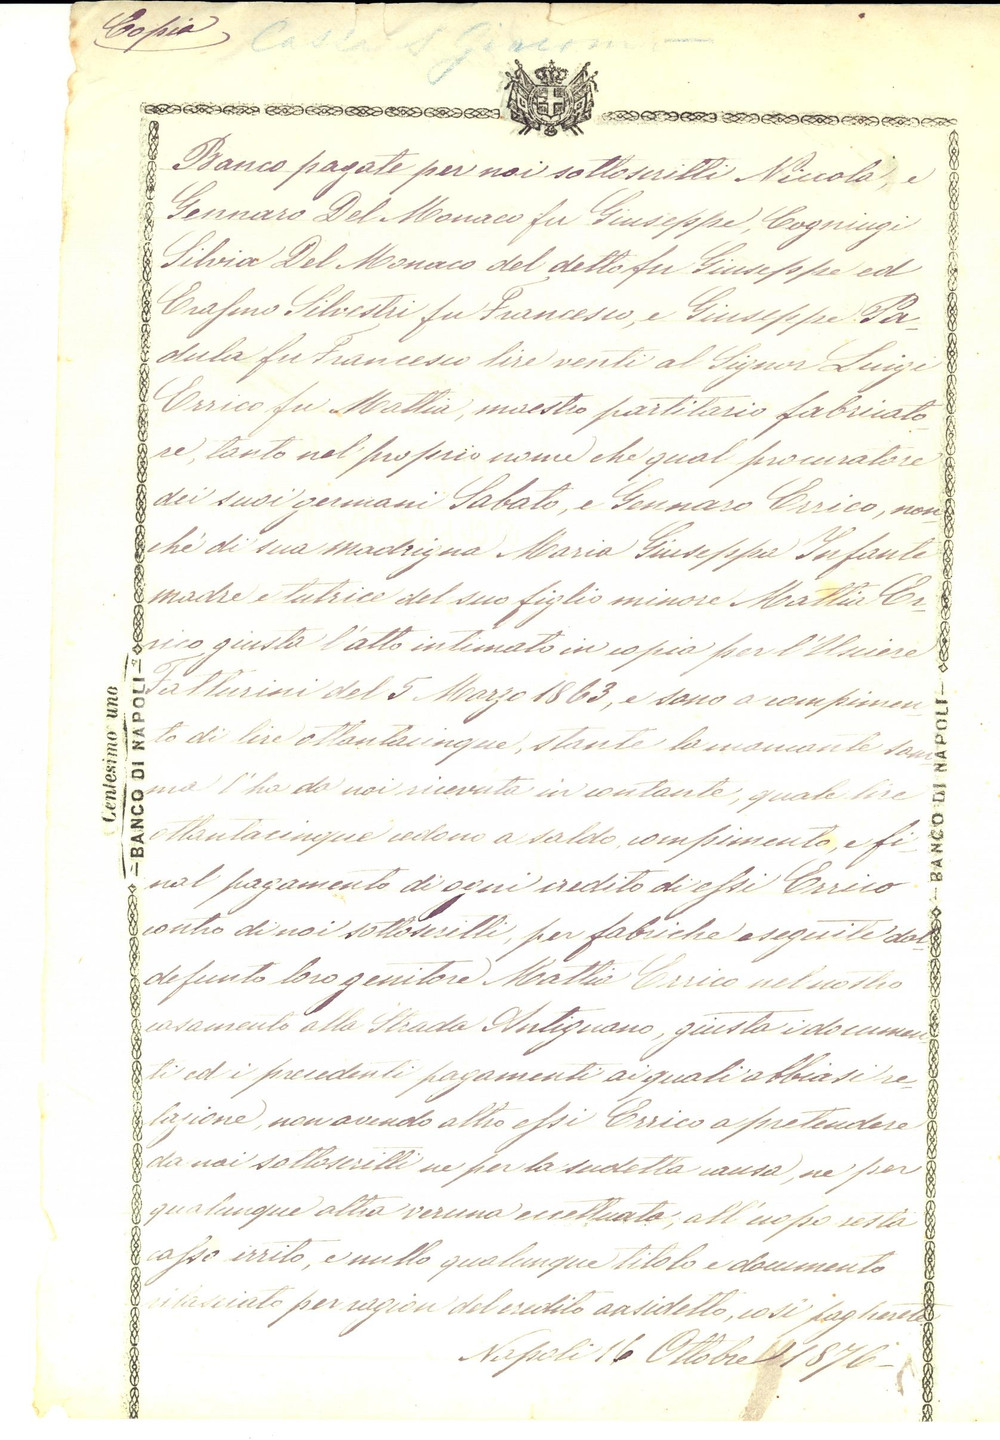 Copia
Cassa S Giacomo
Banco pagate per noi sottoscritti Niccola, e
Gennaro Del Monaco fu Giuseppe, Cogniugi
Silvia Del Monaco del detto fu Giuseppe ed
Erasmo Silvestri fu Francesco, e Giuseppe Pa-
dula fu Francesco lire venti al Signor Luigi
Errico fu Mattia, maestro partitario fabricato-
re, tanto nel proprio nome che qual procuratore
dei suoi germani Sabato, e Gennaro Errico, non-
chè di sua madrigna Maria Giuseppa Infante
madre e tutrice del suo figlio minore Mattia Er-
rico, giusta l'atto intimato in copia per l'Usciere
del 5 Marzo 1863, e sono a compimen-
to di lire ottantacinque, stante la mancante som-
ma l'ha da noi ricevuta in contante, quale lire
ottantacinque cedono a saldo, compimento, e fi-
nal pagamento di ogni credito di essi Errico
contro di noi sottoscritti, per fabriche eseguite dal
defunto loro genitore Mattia Errico nel nostro
casamento alla Strada Antignano, giusta i documen-
ti ed i precedenti pagamenti ai quali abbiasi re-
lazione, non avendo altro essi Errico a pretendere
da noi sottoscritti ne per la sudetta causa, ne per
qualunque altra veruna eccettuata, all'uopo resta
casso irrito, e nullo qualunque titolo e documento
rilasciato per ragion del credito ansidetto, così pagherete
Napoli 16 Ottobre 1876 -
Centesimo uno
BANCO DI NAPOLI
BANCO DI NAPOLI